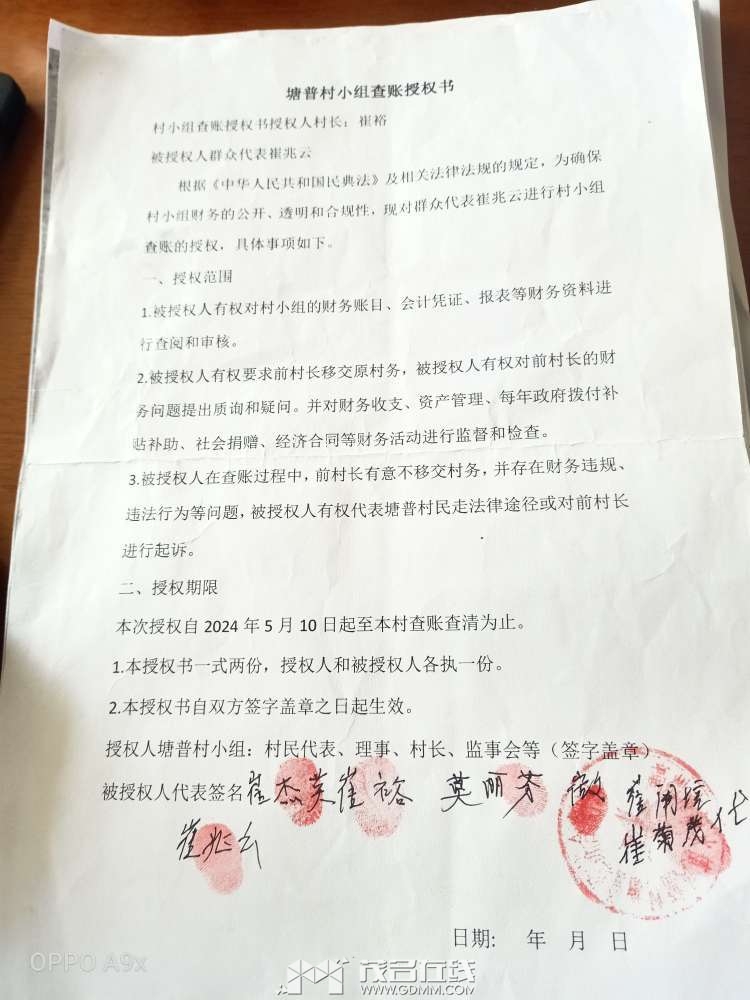 塘普村小组查账授权书
村小组查账授权书授权人村长：崔裕
被授权人群众代表崔兆云
根据《中华人民共和国民典法》及相关法律法规的规定，为确保
村小组财务的公开、透明和合规性，现对群众代表崔兆云进行村小组
查账的授权，具体事项如下。
一、授权范围
1.被授权人有权对村小组的财务账目、会计凭证、报表等财务资料进
行查阅和审核。
2.被授权人有权要求前村长移交原村务，被授权人有权对前村长的财
务问题提出质询和疑问。并对财务收支、资产管理、每年政府拨付补
贴补助、社会捐赠、经济合同等财务活动进行监督和检查。
3.被授权人在查账过程中，前村长有意不移交村务，并存在财务违规、
违法行为等问题，被授权人有权代表塘普村民走法律途径或对前村长
进行起诉。
二、授权期限
本次授权自 2024 年 5 月 10 日起至本村查账查清为止。
1.本授权书一式两份，授权人和被授权人各执一份。
2.本授权书自双方签字盖章之日起生效。
授权人塘普村小组：村民代表、理事、村长、监事会等（签字盖章）
被授权人代表签名 崔杰英 崔裕 莫丽芳
崔菊茂代
崔兆云
日期: 年 月 日
OPPO A9x
茂名在线
WWW.GDMM.COM